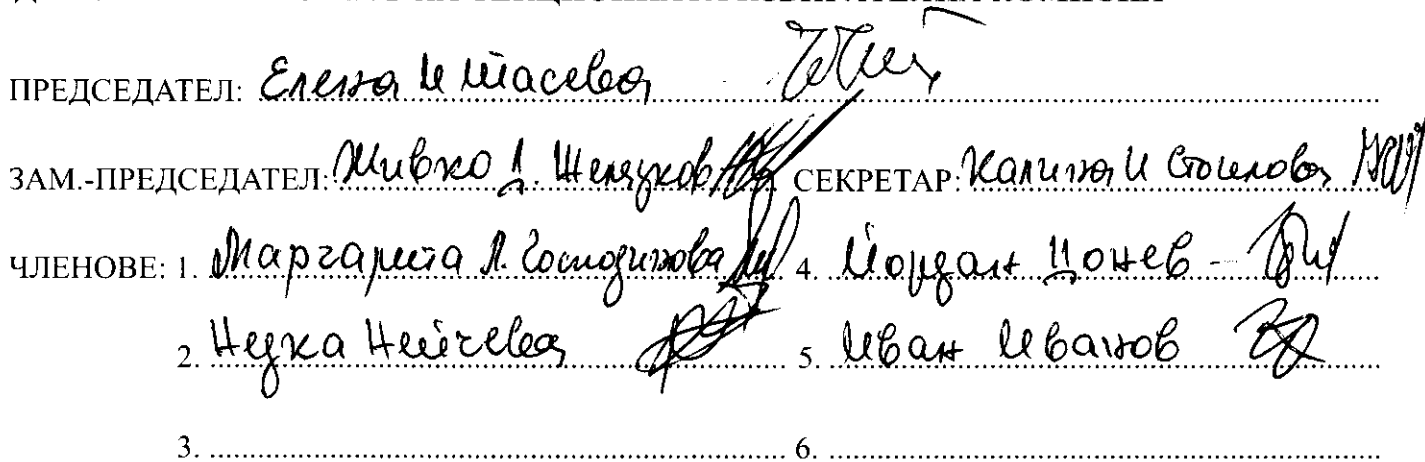 ПРЕДСЕДАТЕЛ: Елена И Тасева
ЗАМ.-ПРЕДСЕДАТЕЛ: Живко Д. Желязков СЕКРЕТАР: Калина И Стоилова
ЧЛЕНОВЕ: 1. Маргарита Л. Господинова 4. Йордан Цонев -
2. Недка Нейчева 5. Иван Иванов
3. 6.